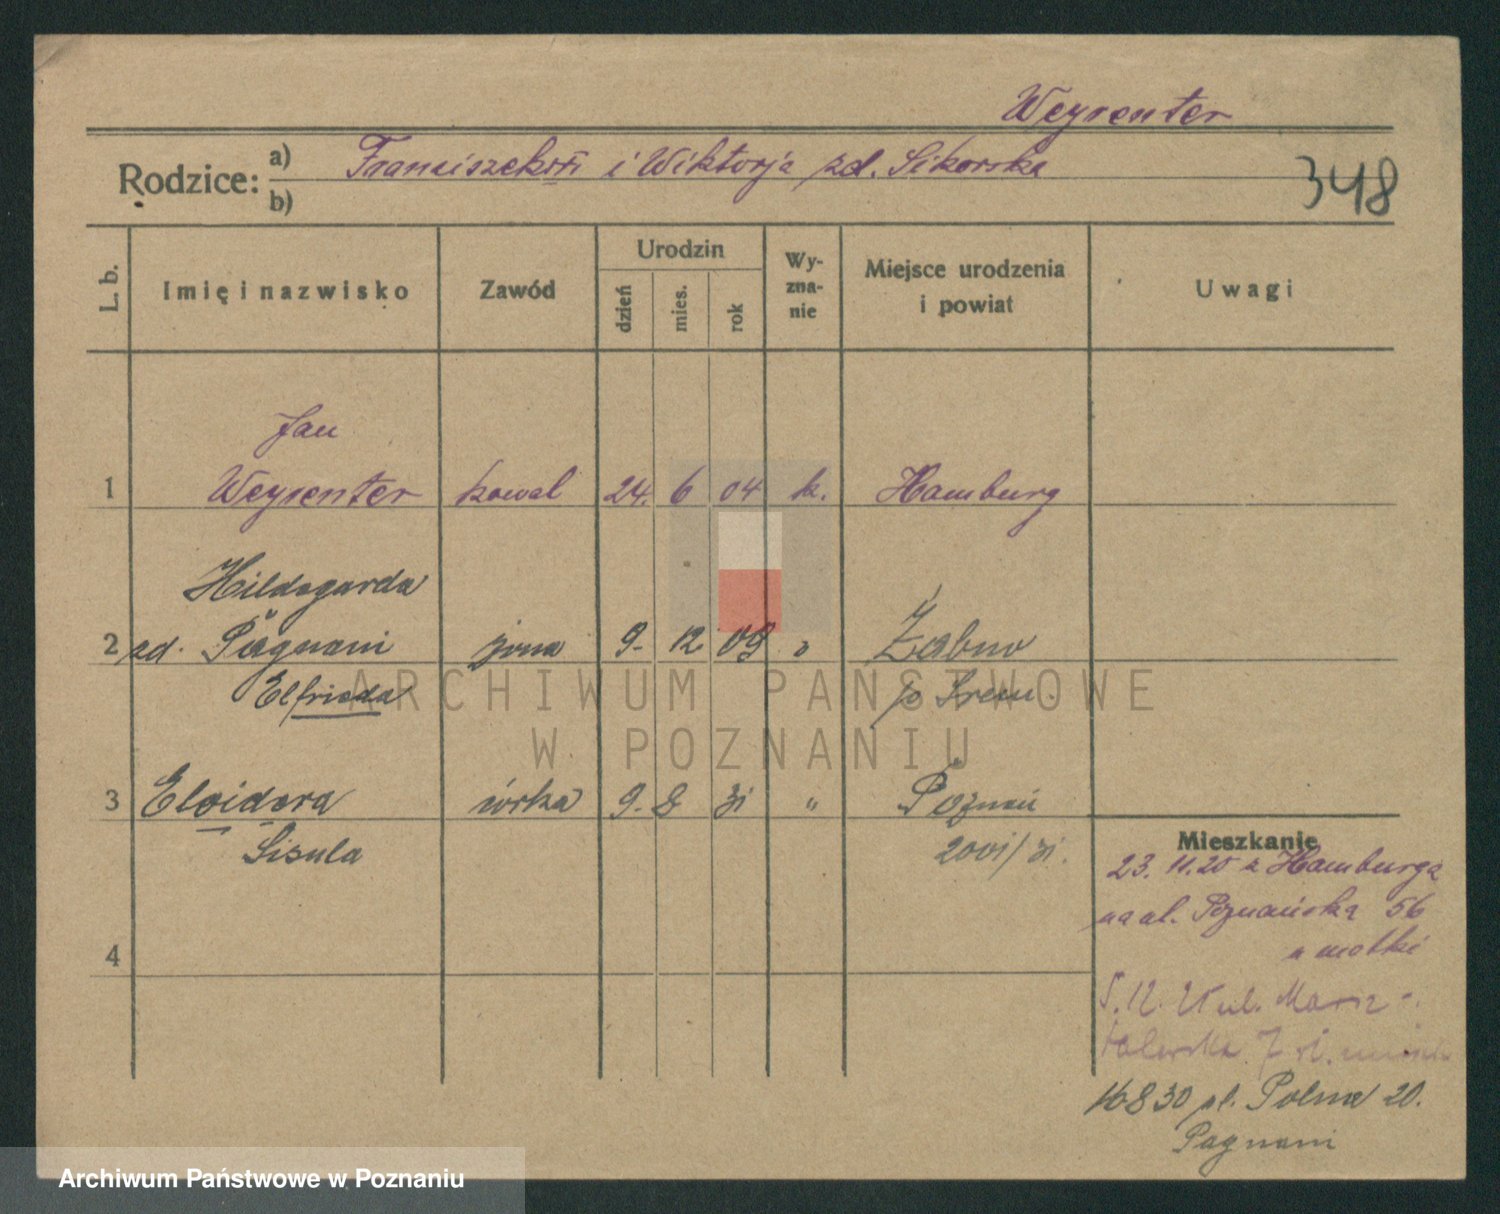 Weysenter
Rodzice: a) Franciszek i Wiktorja zd. Sikorska
b)
348
L. b.
Imię i nazwisko
Zawód
Urodzin
dzień
mies.
rok
Wy-
zna-
nie
Miejsce urodzenia
i powiat
Uwagi
Jan
1 Weysenter kowal 24. 6 04 k. Hamburg
Hildegarda
2 zd. Pagnani żona 9. 12 09 " Żabno
Elfrieda p. Śrem.
3 córka 9. 8 31 " Poznań
Gizula 2001/31.
4
Mieszkanie
23. 11. 20 z Hamburga
na ul. Poznańska 56
u matki
5. 12. ul. Marsz-
7
16830 pl. Polna 20.
Pagnani
ARCHIWUM PAŃSTWOWE
W POZNANIU
Archiwum Państwowe w Poznaniu